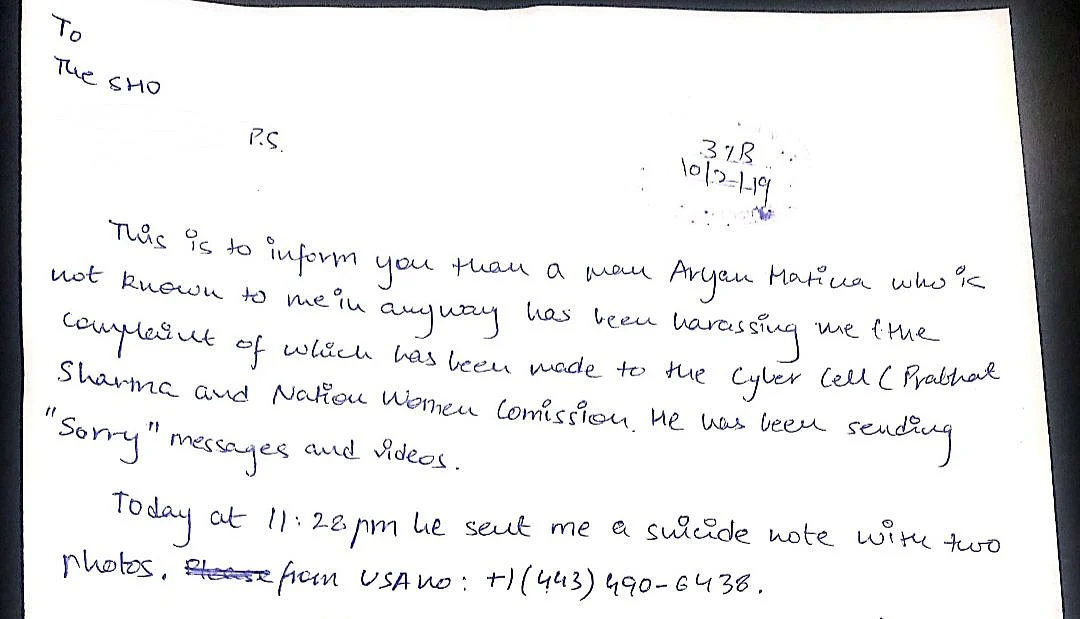 To
The SHO
P.S.
37B
10/2/19
This is to inform you than a man Aryan Matina who is
not known to me in anyway has been harassing me (the
complaint of which has been made to the Cyber Cell ( Prabhat
Sharma and Nation Women Comission. He has been sending
"Sorry" messages and videos.
Today at 11:28 pm he sent me a suicide note with two
photos. Please from USA no: +1(443) 490-6438.